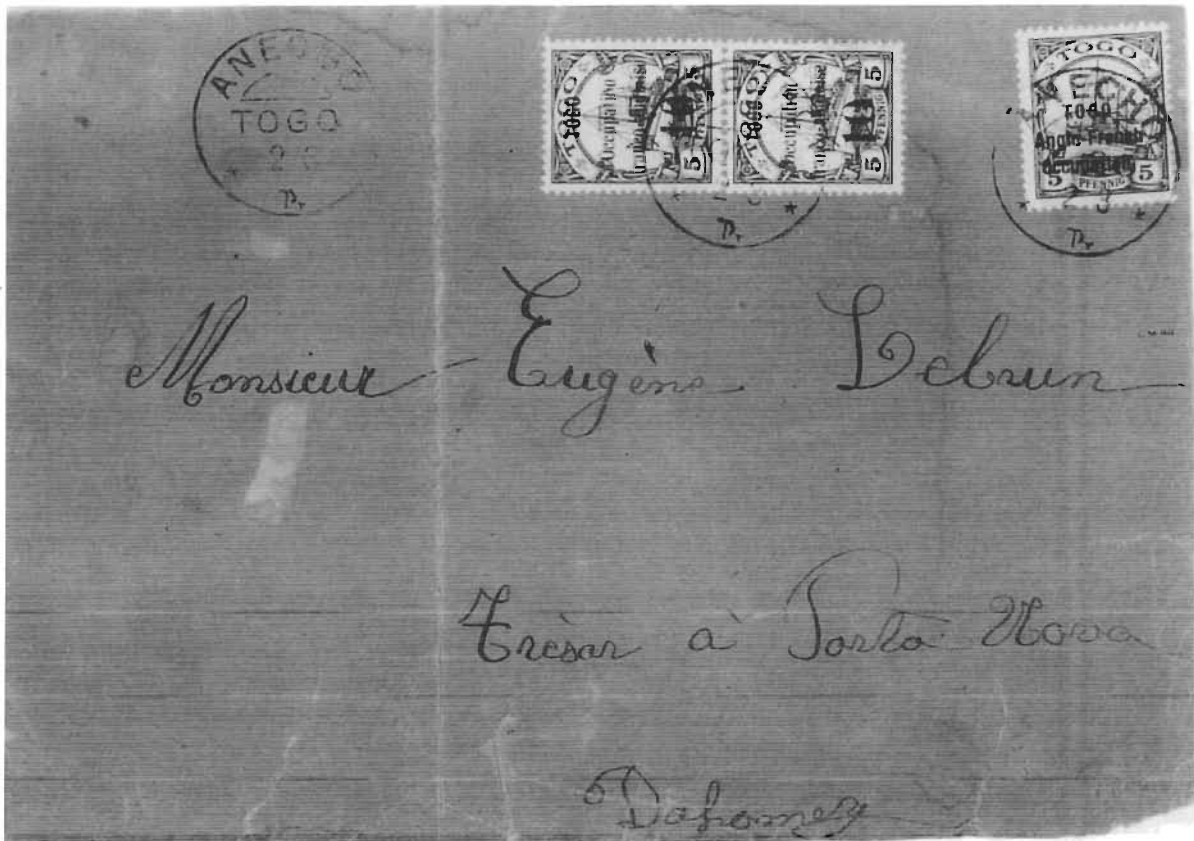 ANECHO
TOGO
TOGO
Occupation
franco-anglaise
TOGO
5 5
PFENNIG
TOGO
Occupation
franco-anglaise
TOGO
5 5
PFENNIG
TOGO
TOGO
Anglo-French
occupation
5 5
PFENNIG
Monsieur Eugène Lebrun
Trèsor à Porto Novo
Dahomey